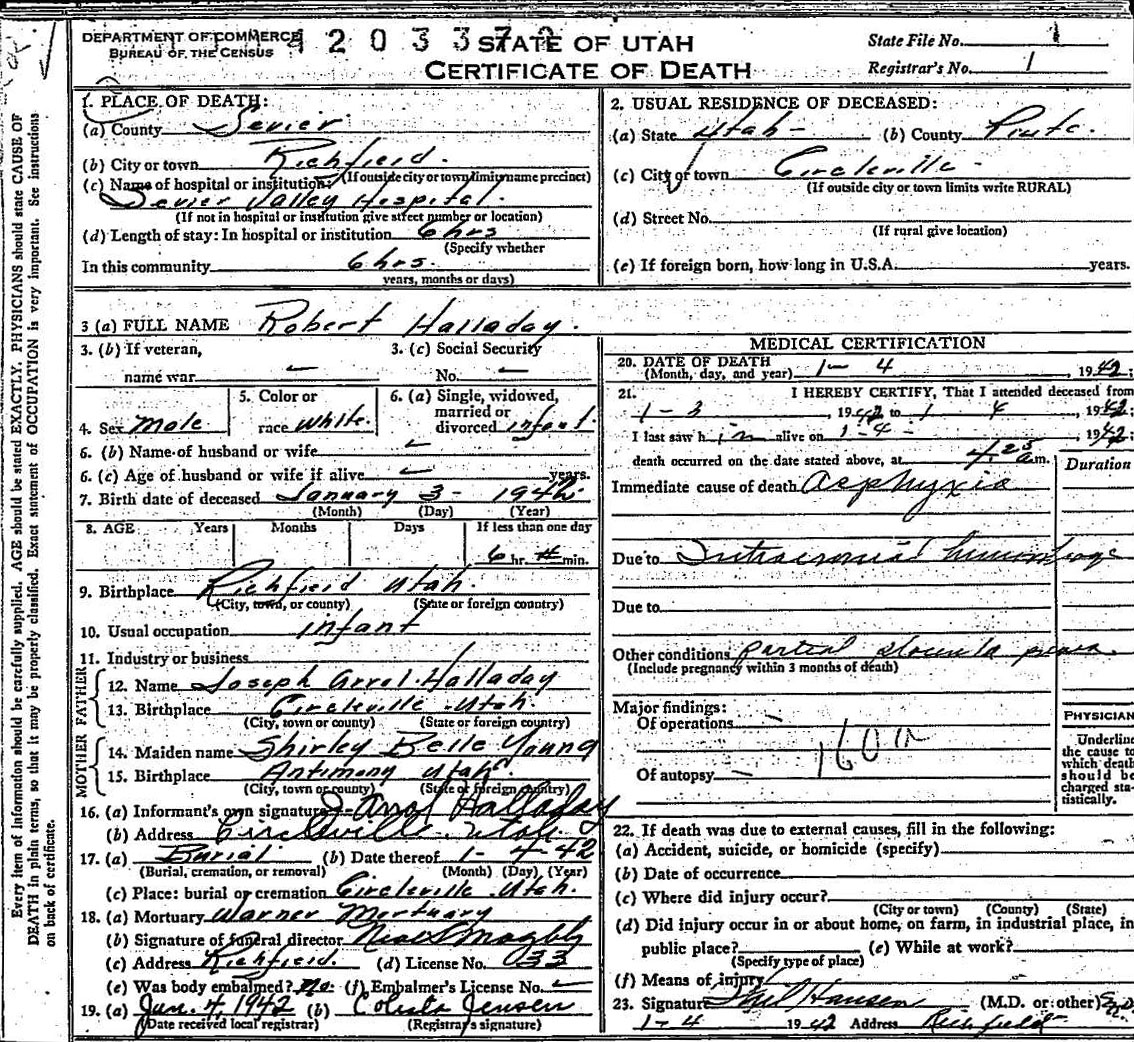 DEPARTMENT OF COMMERCE
BUREAU OF THE CENSUS
STATE OF UTAH
CERTIFICATE OF DEATH
State File No. 1
Registrar's No. 1
Every item of information should be carefully supplied. AGE should be stated EXACTLY. PHYSICIANS should state CAUSE OF
DEATH in plain terms, so that it may be properly classified. Exact statement of OCCUPATION is very important. See instructions
on back of certificate.
1. PLACE OF DEATH:
(a) County Sevier
(b) City or town Richfield.
(If outside city or town limits name precinct)
(c) Name of hospital or institution:
Sevier Valley Hospital.
(If not in hospital or institution give street number or location)
(d) Length of stay: In hospital or institution 6 hrs
(Specify whether
In this community 6 hrs.
years, months or days)
2. USUAL RESIDENCE OF DECEASED:
(a) State Utah - (b) County Piute.
(c) City or town Circleville
(If outside city or town limits write RURAL)
(d) Street No.
(If rural give location)
(e) If foreign born, how long in U.S.A. years.
3 (a) FULL NAME Robert Halladay.
3. (b) If veteran,
name war
3. (c) Social Security
No.
4. Sex Male
5. Color or
race White.
6. (a) Single, widowed,
married or
divorced infant.
6. (b) Name of husband or wife
6. (c) Age of husband or wife if alive years.
7. Birth date of deceased January 3 - 1942
(Month) (Day) (Year)
8. AGE Years Months Days If less than one day
6 hr. min.
9. Birthplace Richfield Utah.
(City, town, or county) (State or foreign country)
10. Usual occupation infant
11. Industry or business
FATHER
12. Name Joseph Arrol Halladay
13. Birthplace Circleville Utah.
(City, town or county) (State or foreign country)
MOTHER
14. Maiden name Shirley Belle Young
15. Birthplace Antimony Utah.
(City, town or county) (State or foreign country)
16. (a) Informant's own signature J. Arrol Halladay
(b) Address Circleville Utah.
17. (a) Burial (b) Date thereof 1-4-42
(Burial, cremation, or removal) (Month) (Day) (Year)
(c) Place: burial or cremation Circleville Utah.
18. (a) Mortuary Warner Mortuary
(b) Signature of funeral director Neal S Magleby
(c) Address Richfield. (d) License No. 033
(e) Was body embalmed? No. (f) Embalmer's License No.
19. (a) Jan. 4, 1942 (b) Jensen
(Date received local registrar) (Registrar's signature)
MEDICAL CERTIFICATION
20. DATE OF DEATH 1- 4 1942;
(Month, day, and year)
21. I HEREBY CERTIFY, That I attended deceased from
1-3, 1942 to 1 4, 1942;
I last saw him alive on 1-4-, 1942;
death occurred on the date stated above, at 4 25 a.m.
Duration
Immediate cause of death Asphyxia
Due to Intracranial hemorrhage
Due to
Other conditions partial
(Include pregnancy within 3 months of death)
Major findings:
Of operations
160
Of autopsy
PHYSICIAN
Underline
the cause to
which death
should be
charged sta-
tistically.
22. If death was due to external causes, fill in the following:
(a) Accident, suicide, or homicide (specify)
(b) Date of occurrence
(c) Where did injury occur?
(City or town) (County) (State)
(d) Did injury occur in or about home, on farm, in industrial place, in
public place? (e) While at work?
(Specify type of place)
(f) Means of injury
23. Signature Hansen (M.D. or other)
1-4 1942 Address Richfield